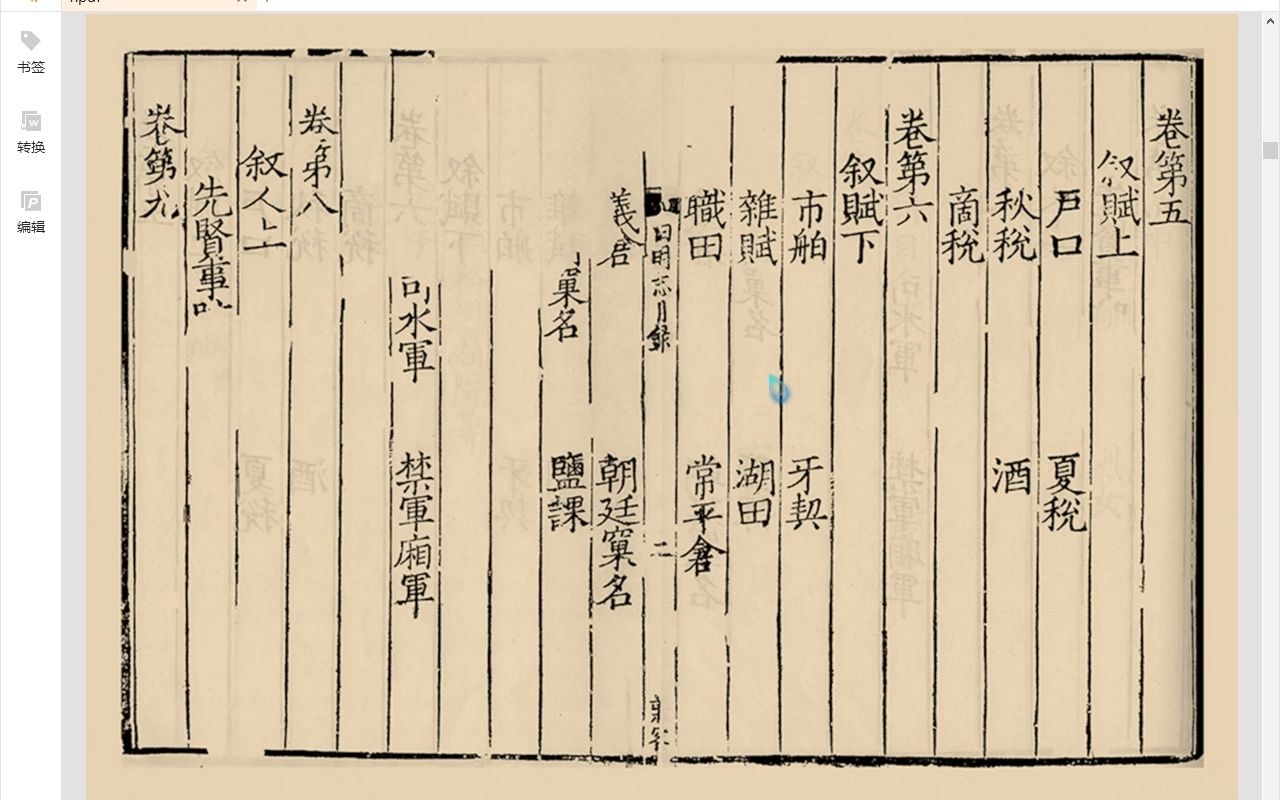 书签
转换
编辑
卷第五
叙賦上
戶口 夏稅
秋稅 酒
商稅
卷第六
叙賦下
市舶 牙契
雜賦 湖田
職田 常平倉
四明志目錄 二
義倉 朝廷窠名
窠名 鹽課
水軍 禁軍廂軍
卷第八
叙人上
先賢事
卷第九